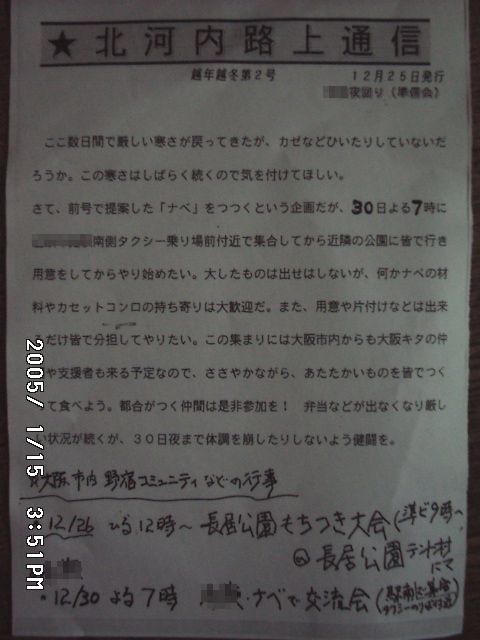 ★北河内路上通信
越年越冬第2号
12月25日発行
夜回り(準備会)
ここ数日間で厳しい寒さが戻ってきたが、カゼなどひいたりしていないだ
ろうか。この寒さはしばらく続くので気を付けてほしい。
さて、前号で提案した「ナベ」をつつくという企画だが、30日よる7時に
南側タクシー乗り場前付近で集合してから近隣の公園に皆で行き
用意をしてからやり始めたい。大したものは出せはしないが、何かナベの材
料やカセットコンロの持ち寄りは大歓迎だ。また、用意や片付けなどは出来
るだけ皆で分担してやりたい。この集まりには大阪市内からも大阪キタの仲
や支援者も来る予定なので、ささやかながら、あたたかいものを皆でつく
て食べよう。都合がつく仲間は是非参加を! 弁当などが出なくなり厳し
い状況が続くが、30日夜まで体調を崩したりしないよう健闘を。
大阪市内 野宿コミュニティなどの行事
12/26 ひる12時〜 長居公園もちつき大会(準ビ9時〜
@長居公園テント村
にて
・12/30 よる7時 ・ナベで交流会(駅南側集合
タクシーのりば付近)
2005/ 1/15 3:51PM